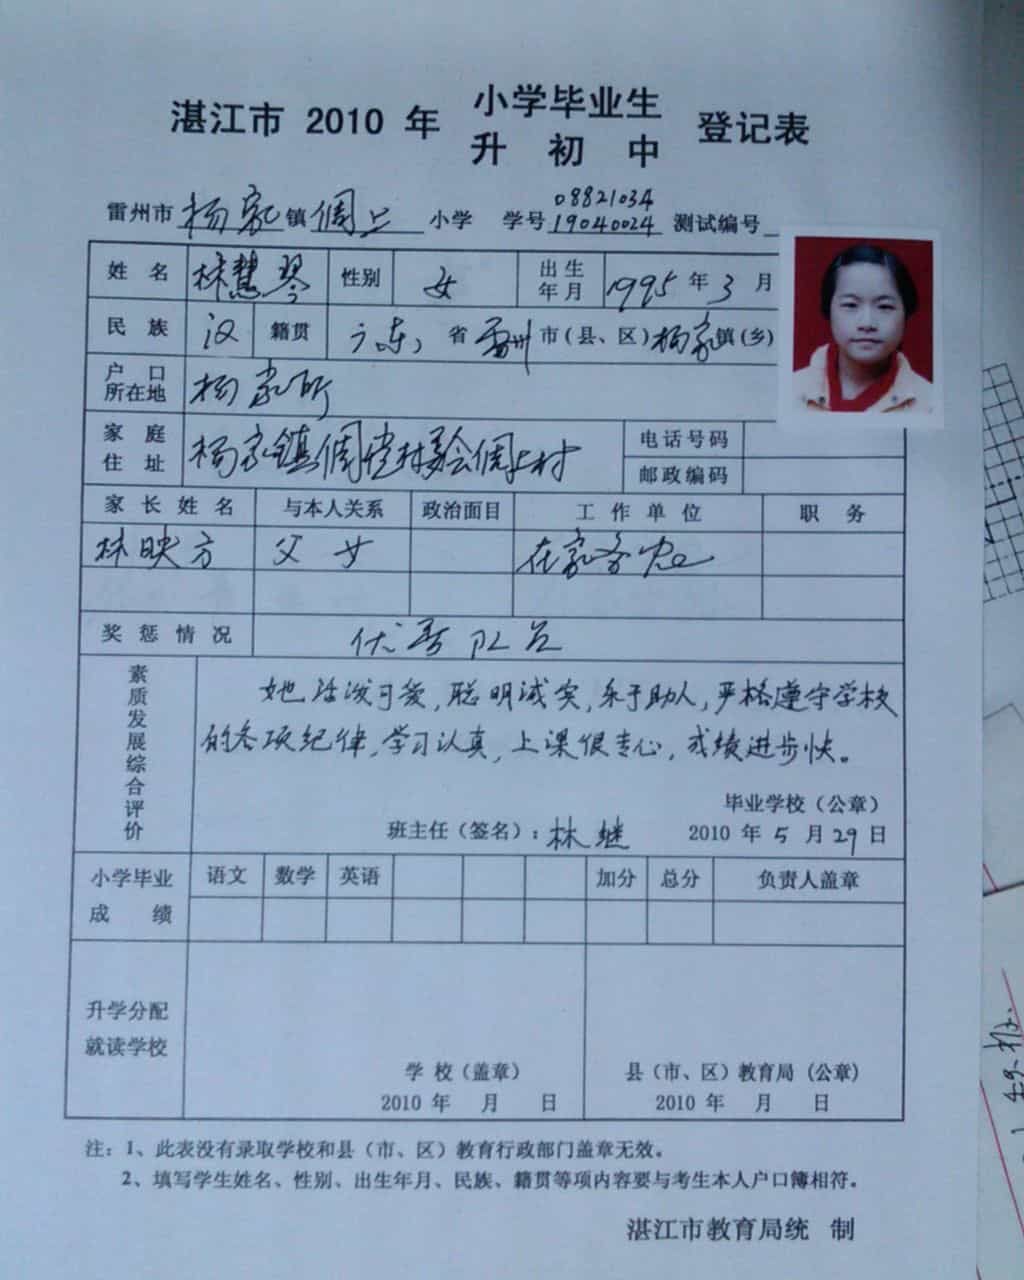 湛江市 2010 年 小学毕业生 登记表
升 初 中
08821034
雷州市 杨家 镇 倜上 小学 学号 19040024 测试编号
姓 名 林慧琴 性别 女 出生年月 1995 年 3 月
民 族 汉 籍贯 广东 省 雷州 市(县、区) 杨家 镇(乡)
户 口 所在地 杨家所
家 庭 住 址 杨家镇倜 村委会倜上村 电话号码
邮政编码
家 长 姓 名 与本人关系 政治面目 工 作 单 位 职 务
林映方 父女 在家务农
奖 惩 情 况 优秀队员
素质发展综合评价
她活泼可爱,聪明诚实,乐于助人,严格遵守学校
的各项纪律,学习认真,上课很专心,成绩进步快。
毕业学校(公章)
班主任(签名): 林继 2010 年 5 月 29 日
小学毕业 成 绩 语文 数学 英语 加分 总分 负责人盖章
升学分配
就读学校
学 校(盖章) 县(市、区)教育局 (公章)
2010 年 月 日 2010 年 月 日
注: 1、此表没有录取学校和县(市、区)教育行政部门盖章无效。
2、填写学生姓名、性别、出生年月、民族、籍贯等项内容要与考生本人户口簿相符。
湛江市教育局统 制